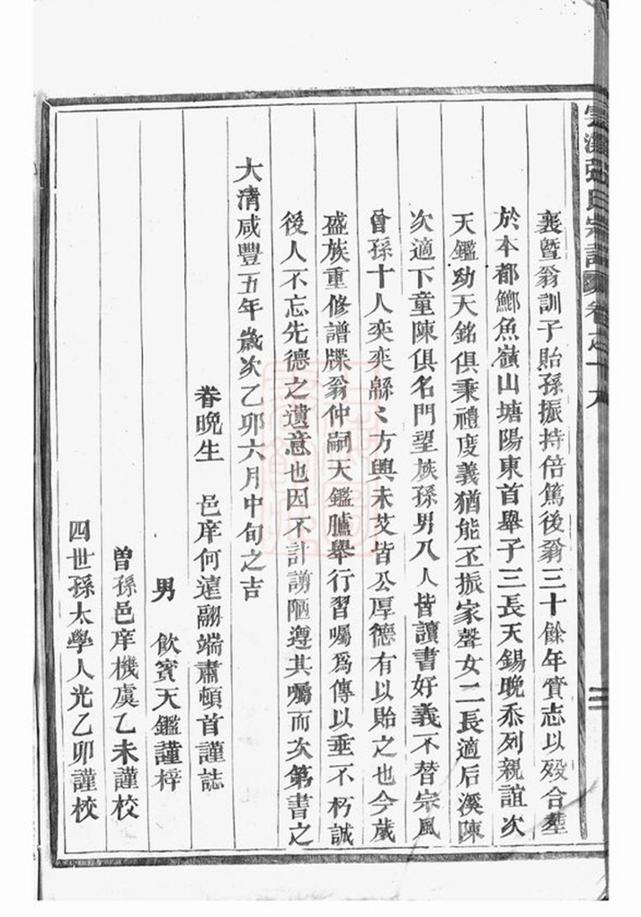 襄暨翁訓子貽孫振持倍篤後翁三十餘年賫志以歿合塟
於本都鄉魚嶺山塘陽東首舉子三長天錫晚忝列親誼次
天鑑幼天銘俱秉禮度義猶能丕振家聲女二長適后溪陳
次適下童陳俱名門望族孫男八人皆讀書好義不替宗風
曾孫十人奕奕緜〻方興未艾皆公厚德有以貽之也今歲
盛族重修譜牒翁仲嗣天鑑臚舉行習囑爲傳以垂不朽誠
後人不忘先德之遺意也因不計謭陋遵其囑而次第書之
大清咸豐五年歲次乙卯六月中旬之吉
眷晚生 邑庠何遠翮端肅頓首謹誌
男 飲賓天鑑謹梓
曾孫邑庠機虞乙未謹校
四世孫太學人光乙卯謹校